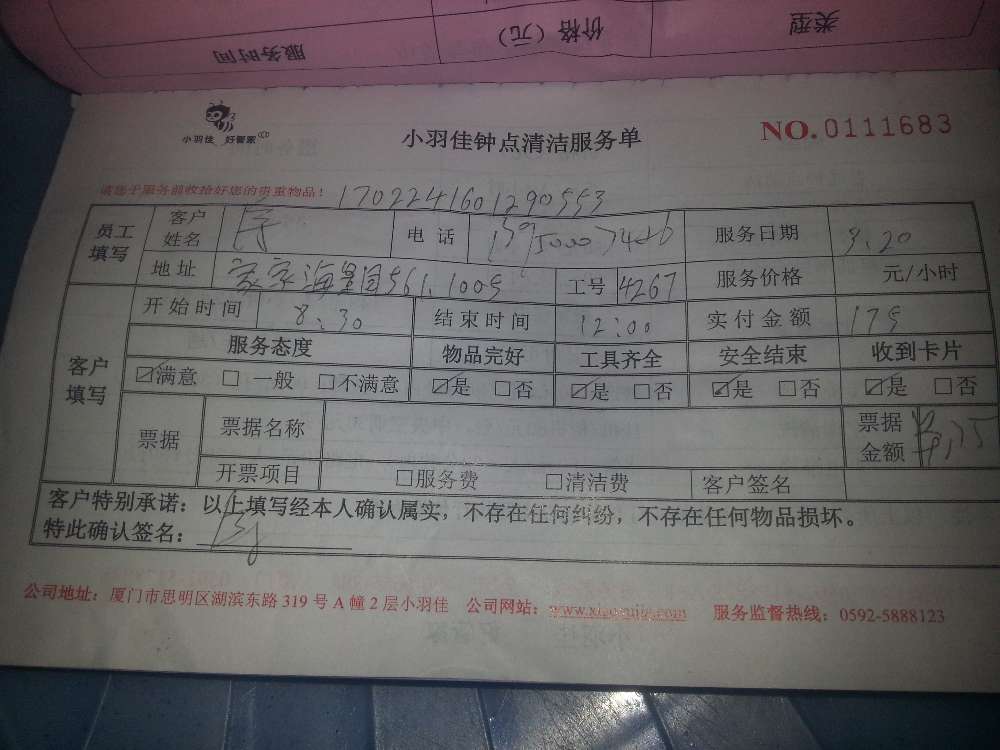 服务时间 价格（元） 类型
小羽佳 好管家
小羽佳钟点清洁服务单
NO.0111683
请您于服务前收拾好您的贵重物品！ 1702241601290553
员工填写 客户姓名 电话 服务日期 9.20
地址 工号 4267 服务价格 元/小时
客户填写 开始时间 8:30 结束时间 12:00 实付金额 175
服务态度 物品完好 工具齐全 安全结束 收到卡片
☑满意 □一般 □不满意 ☑是 □否 ☑是 □否 ☑是 □否 ☑是 □否
票据 票据名称 票据金额
开票项目 □服务费 □清洁费 客户签名
客户特别承诺：以上填写经本人确认属实，不存在任何纠纷，不存在任何物品损坏。
特此确认签名：
公司地址：厦门市思明区湖滨东路319号A幢2层小羽佳 公司网站：www.xiaoyujia.com 服务监督热线：0592-5888123